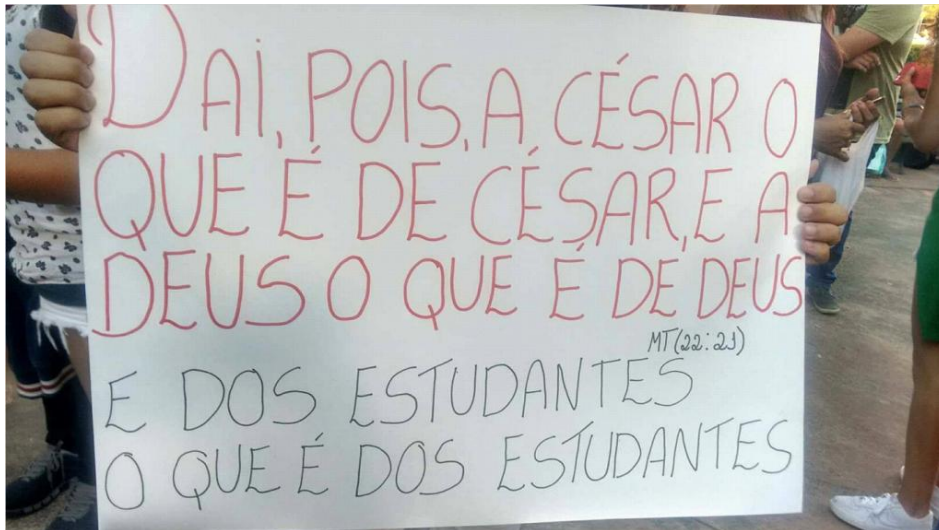 DAI, POIS, A CÉSAR O
QUE É DE CÉSAR, E A
DEUS O QUE É DE DEUS
MT(22:21)
E DOS ESTUDANTES
O QUE É DOS ESTUDANTES